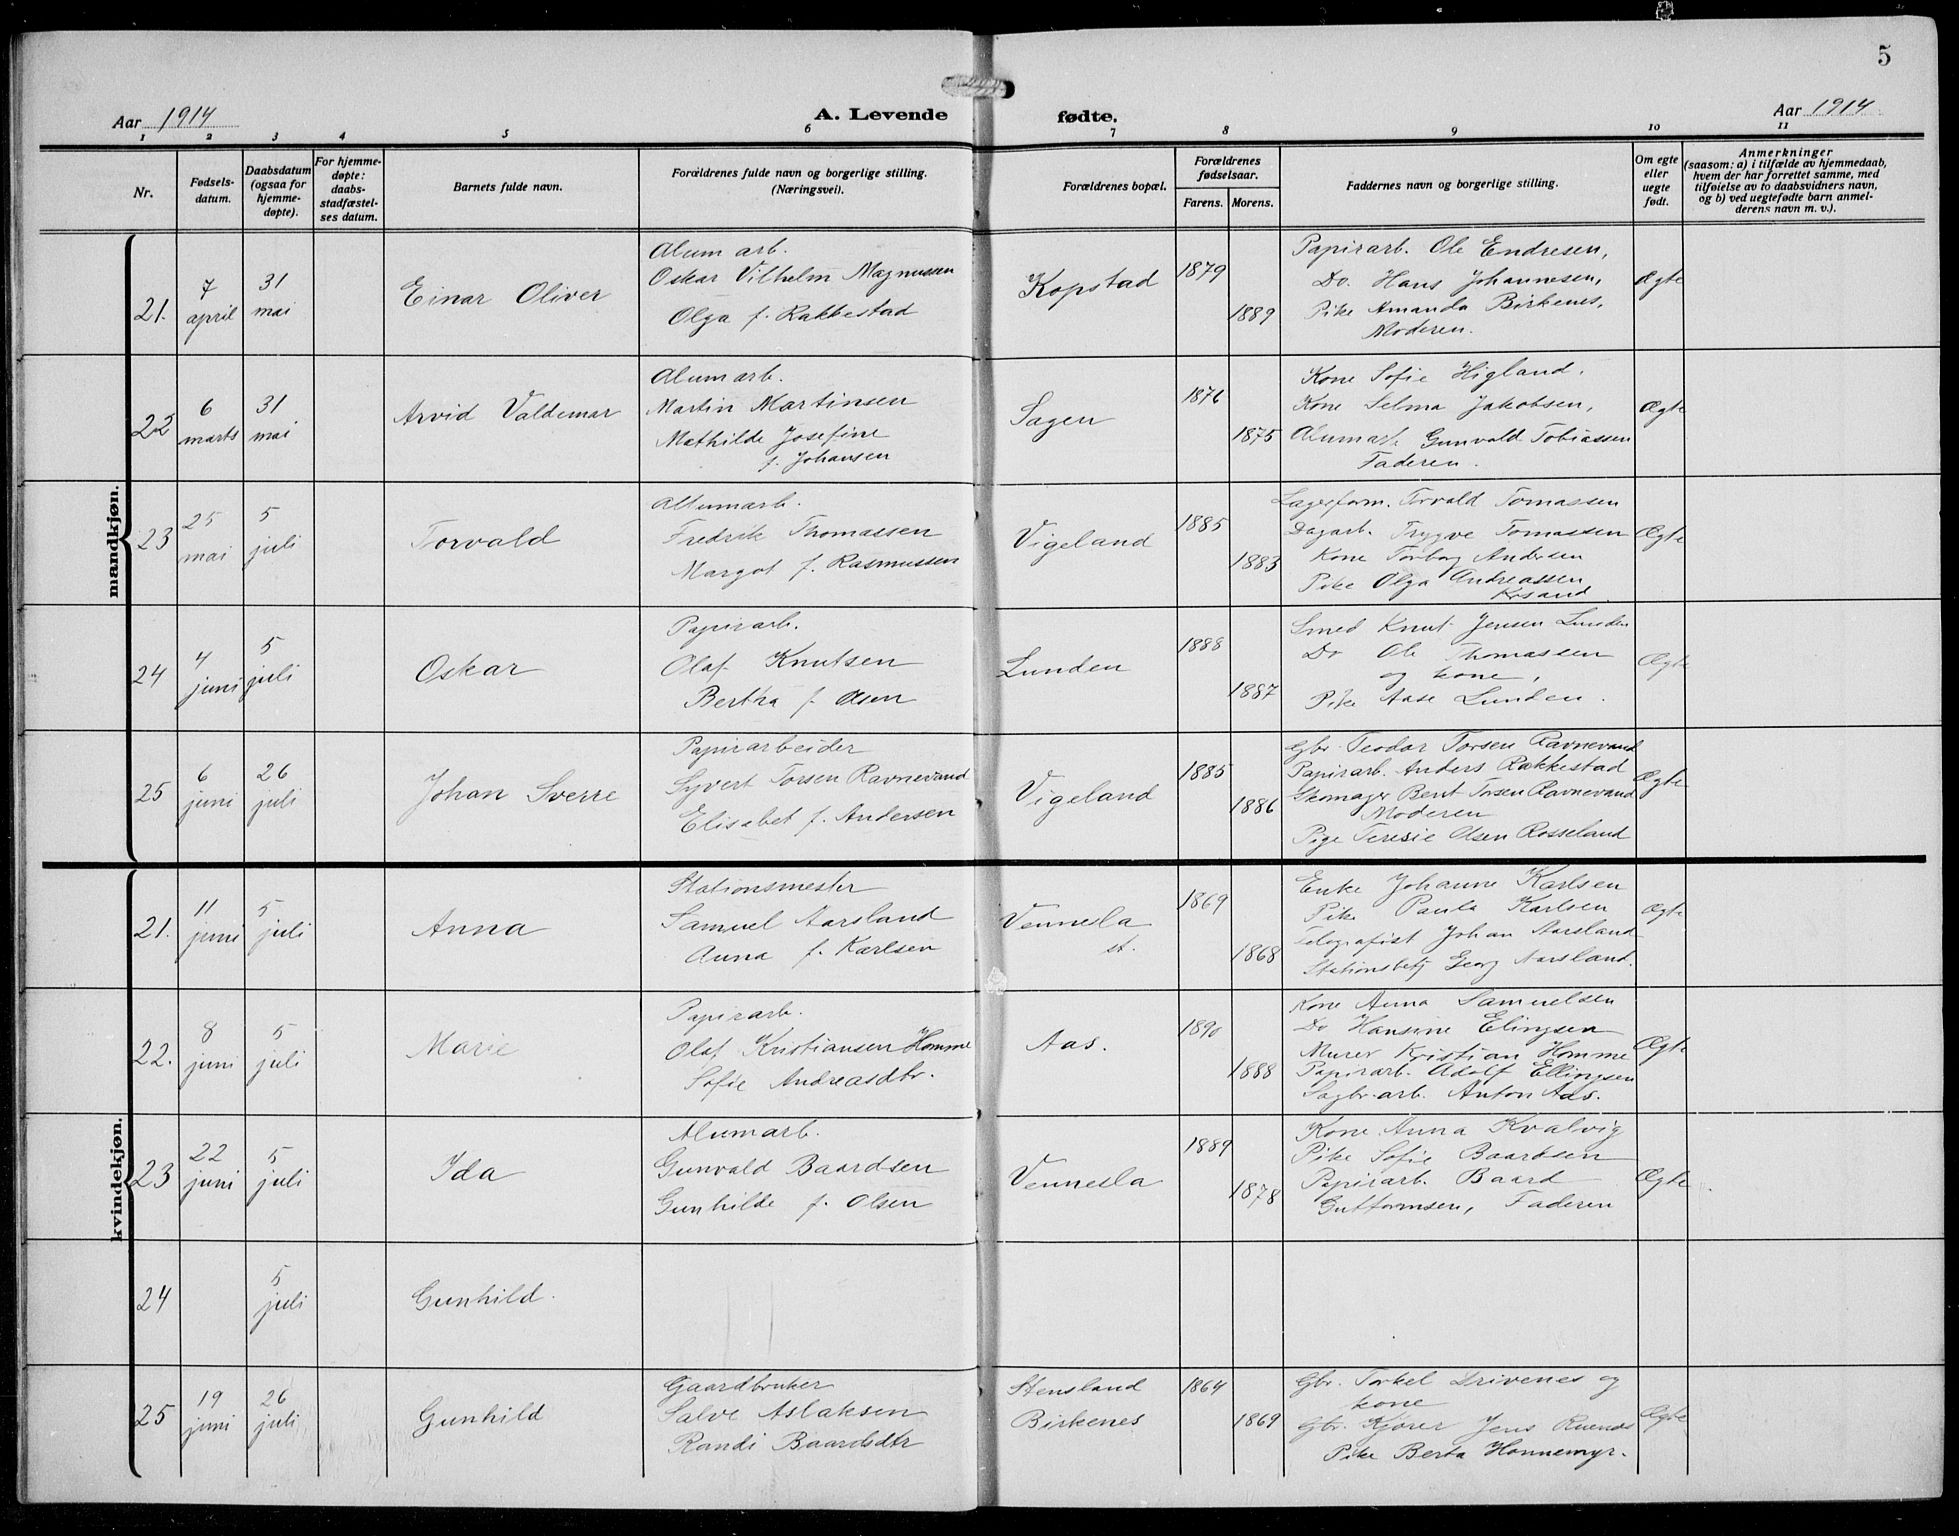 5
Aar 1914
A. Levende fødte.
Aar 1914
1 2 3 4 5 6 7 8 9 10 11
Nr.
Fødsels-
datum.
Daabsdatum
(ogsaa for
hjemme-
døpte).
For hjemme-
døpte:
daabs-
stadfæstel-
ses datum.
Barnets fulde navn.
Forældrenes fulde navn og borgerlige stilling.
(Næringsvei).
Forældrenes bopæl.
Forældrenes
fødselsaar.
Farens. Morens.
Faddernes navn og borgerlige stilling.
Om egte
eller
uegte
født.
Anmerkninger
(saasom: a) i tilfælde av hjemmedaab,
hvem der har forrettet samme, med
tilføielse av to daabsvidners navn,
og b) ved uegtefødte barn anmel-
derens navn m. v.).
mandkjøn.
21.
7
april
31
mai
Einar Oliver
Alum arb.
Oskar Vilhelm Magnussen
Olga f. Rakkestad
Kopstad
1879
1889
Papirarb. Ole Endresen,
Do. Hans Johannesen,
Pike Amanda Birkenes,
Moderen.
Ægte
22
6
marts
31
mai
Arvid Valdemar
Alumarb.
Martin Martinsen
Mathilde Josefine
f. Johansen
Sagen
1876
1875
Kone Sofie Higland,
Kone Selma Jakobsen,
Alumarb Gunvald Tobiassen
Faderen.
Ægte
23
25
mai
5
juli
Torvald
Allumarb.
Fredrik Thomassen
Margot f. Rasmussen
Vigeland
1885
1883
Lagerform. Torvald Tomassen
Dagarb. Trygve Tomassen
Kone Torborg Andersen
Pike Olga Andreassen,
Krsand
Ægte
24
4
juni
5
juli
Oskar
Papirarb.
Olaf Knutsen
Bertha f. Olsen
Lunden
1888
1887
Smed Knut Jensen Lunden
Do Ole Thomassen
og kone,
Pike Aase Lunden.
Ægte
25
6
juni
26
juli
Johan Sverre
Papirarbeider
Syvert Torsen Ravnevand
Elisabet f. Andersen
Vigeland
1885
1886
Gbr. Teodor Torsen Ravnevand
Papirarb. Anders Rakkestad
Skomager Bent Torsen Ravnevand
Moderen
Pige Teresie Olsen Rosseland
Ægte
kvindekjøn.
21.
11
juni
5
juli
Anna
Stationsmester
Samuel Aarsland
Anna f. Karlsen
Vennesla
st.
1869
1868
Enke Johanne Karlsen
Pike Paula Karlsen
Telegrafist Johan Aarsland
Stationsbetj Georg Aarsland.
Ægte
22.
8
juni
5
juli
Marie
Papirarb.
Olaf Kristiansen Homme
Sofie Andreasdtr.
Aas.
1890
1888
Kone Anna Samuelsen
Do Hansine Elingsen
Murer Kristian Homme
Papirarb. Adolf Ellingsen
Sagbr.arb. Anton Aas.
Ægte
23
22
juni
5
juli
Ida
Alumarb.
Gunvald Baardsen
Gunhilde f. Olsen
Vennesla
1889
1878
Kone Anna Kvalvig
Pike Sofie Baardsen
Papirarb. Baard
Guttormsen, Faderen
Ægte
24
5
juli
Gunhild.
25
19
juni
26
juli
Gunhild
Gaardbruker
Salve Aslaksen
Randi Baardsdtr
Stensland
Birkenes
1864
1869
Gbr. Torkel Drivenes og
kone
Gbr. Kjører Jens
Pike Berta Honnemyr.
Ægte